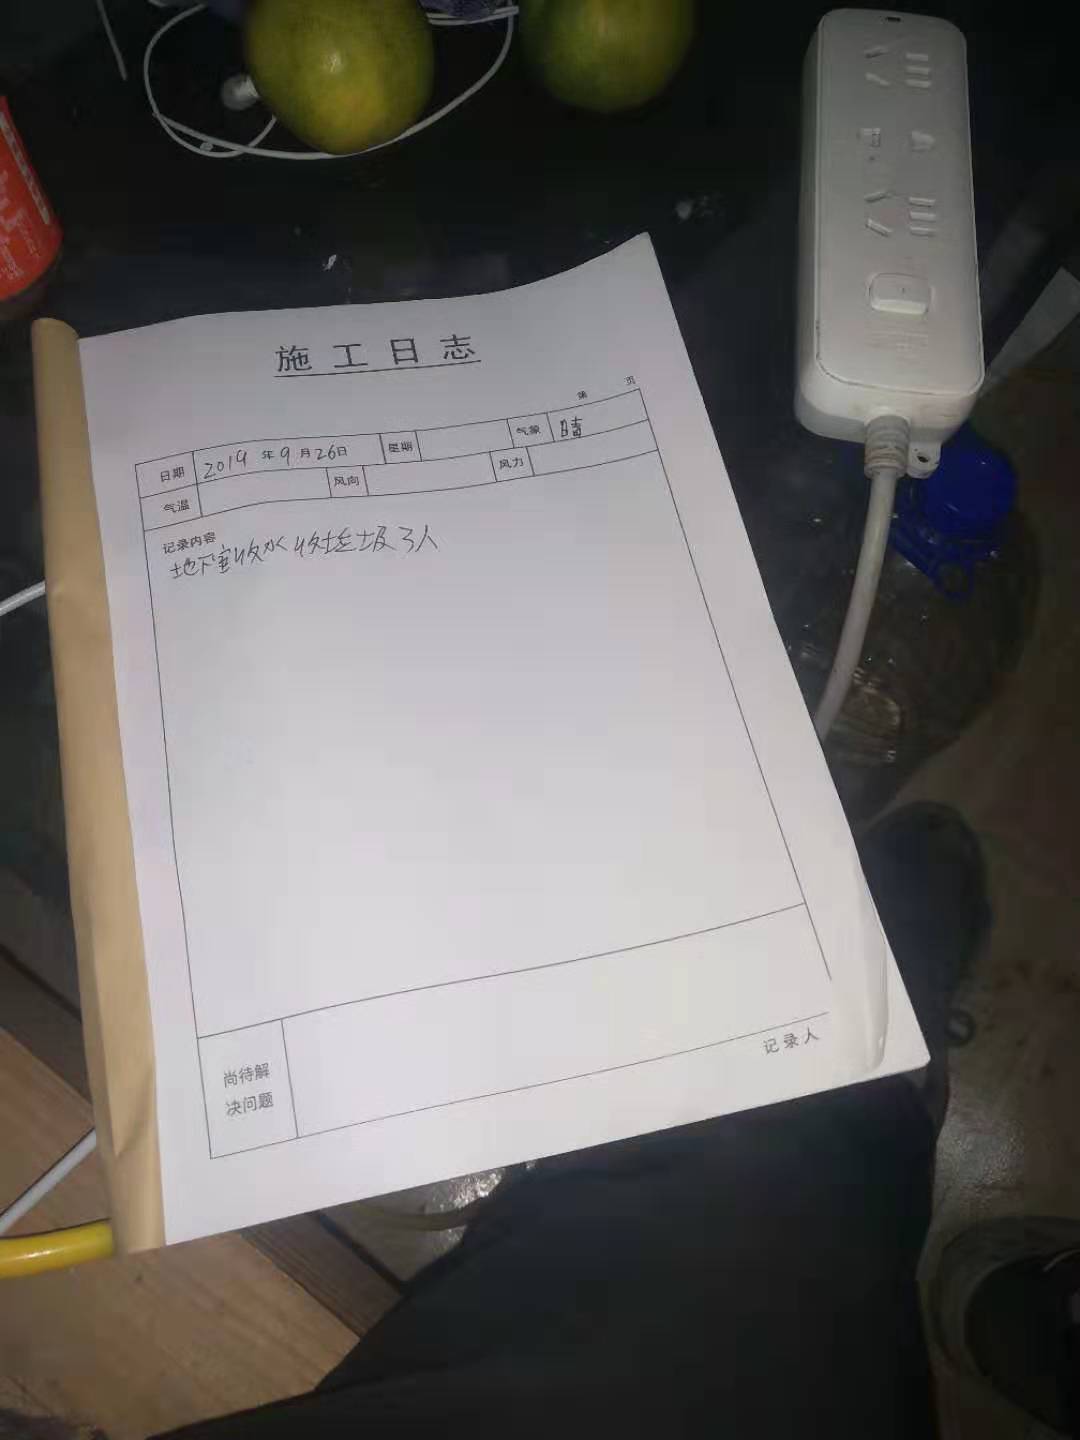 施工日志
第 页
日期 2019 年 9 月 26 日 星期 气象 晴
气温 风向 风力
记录内容
地下室收水收垃圾3人
尚待解
决问题
记录人